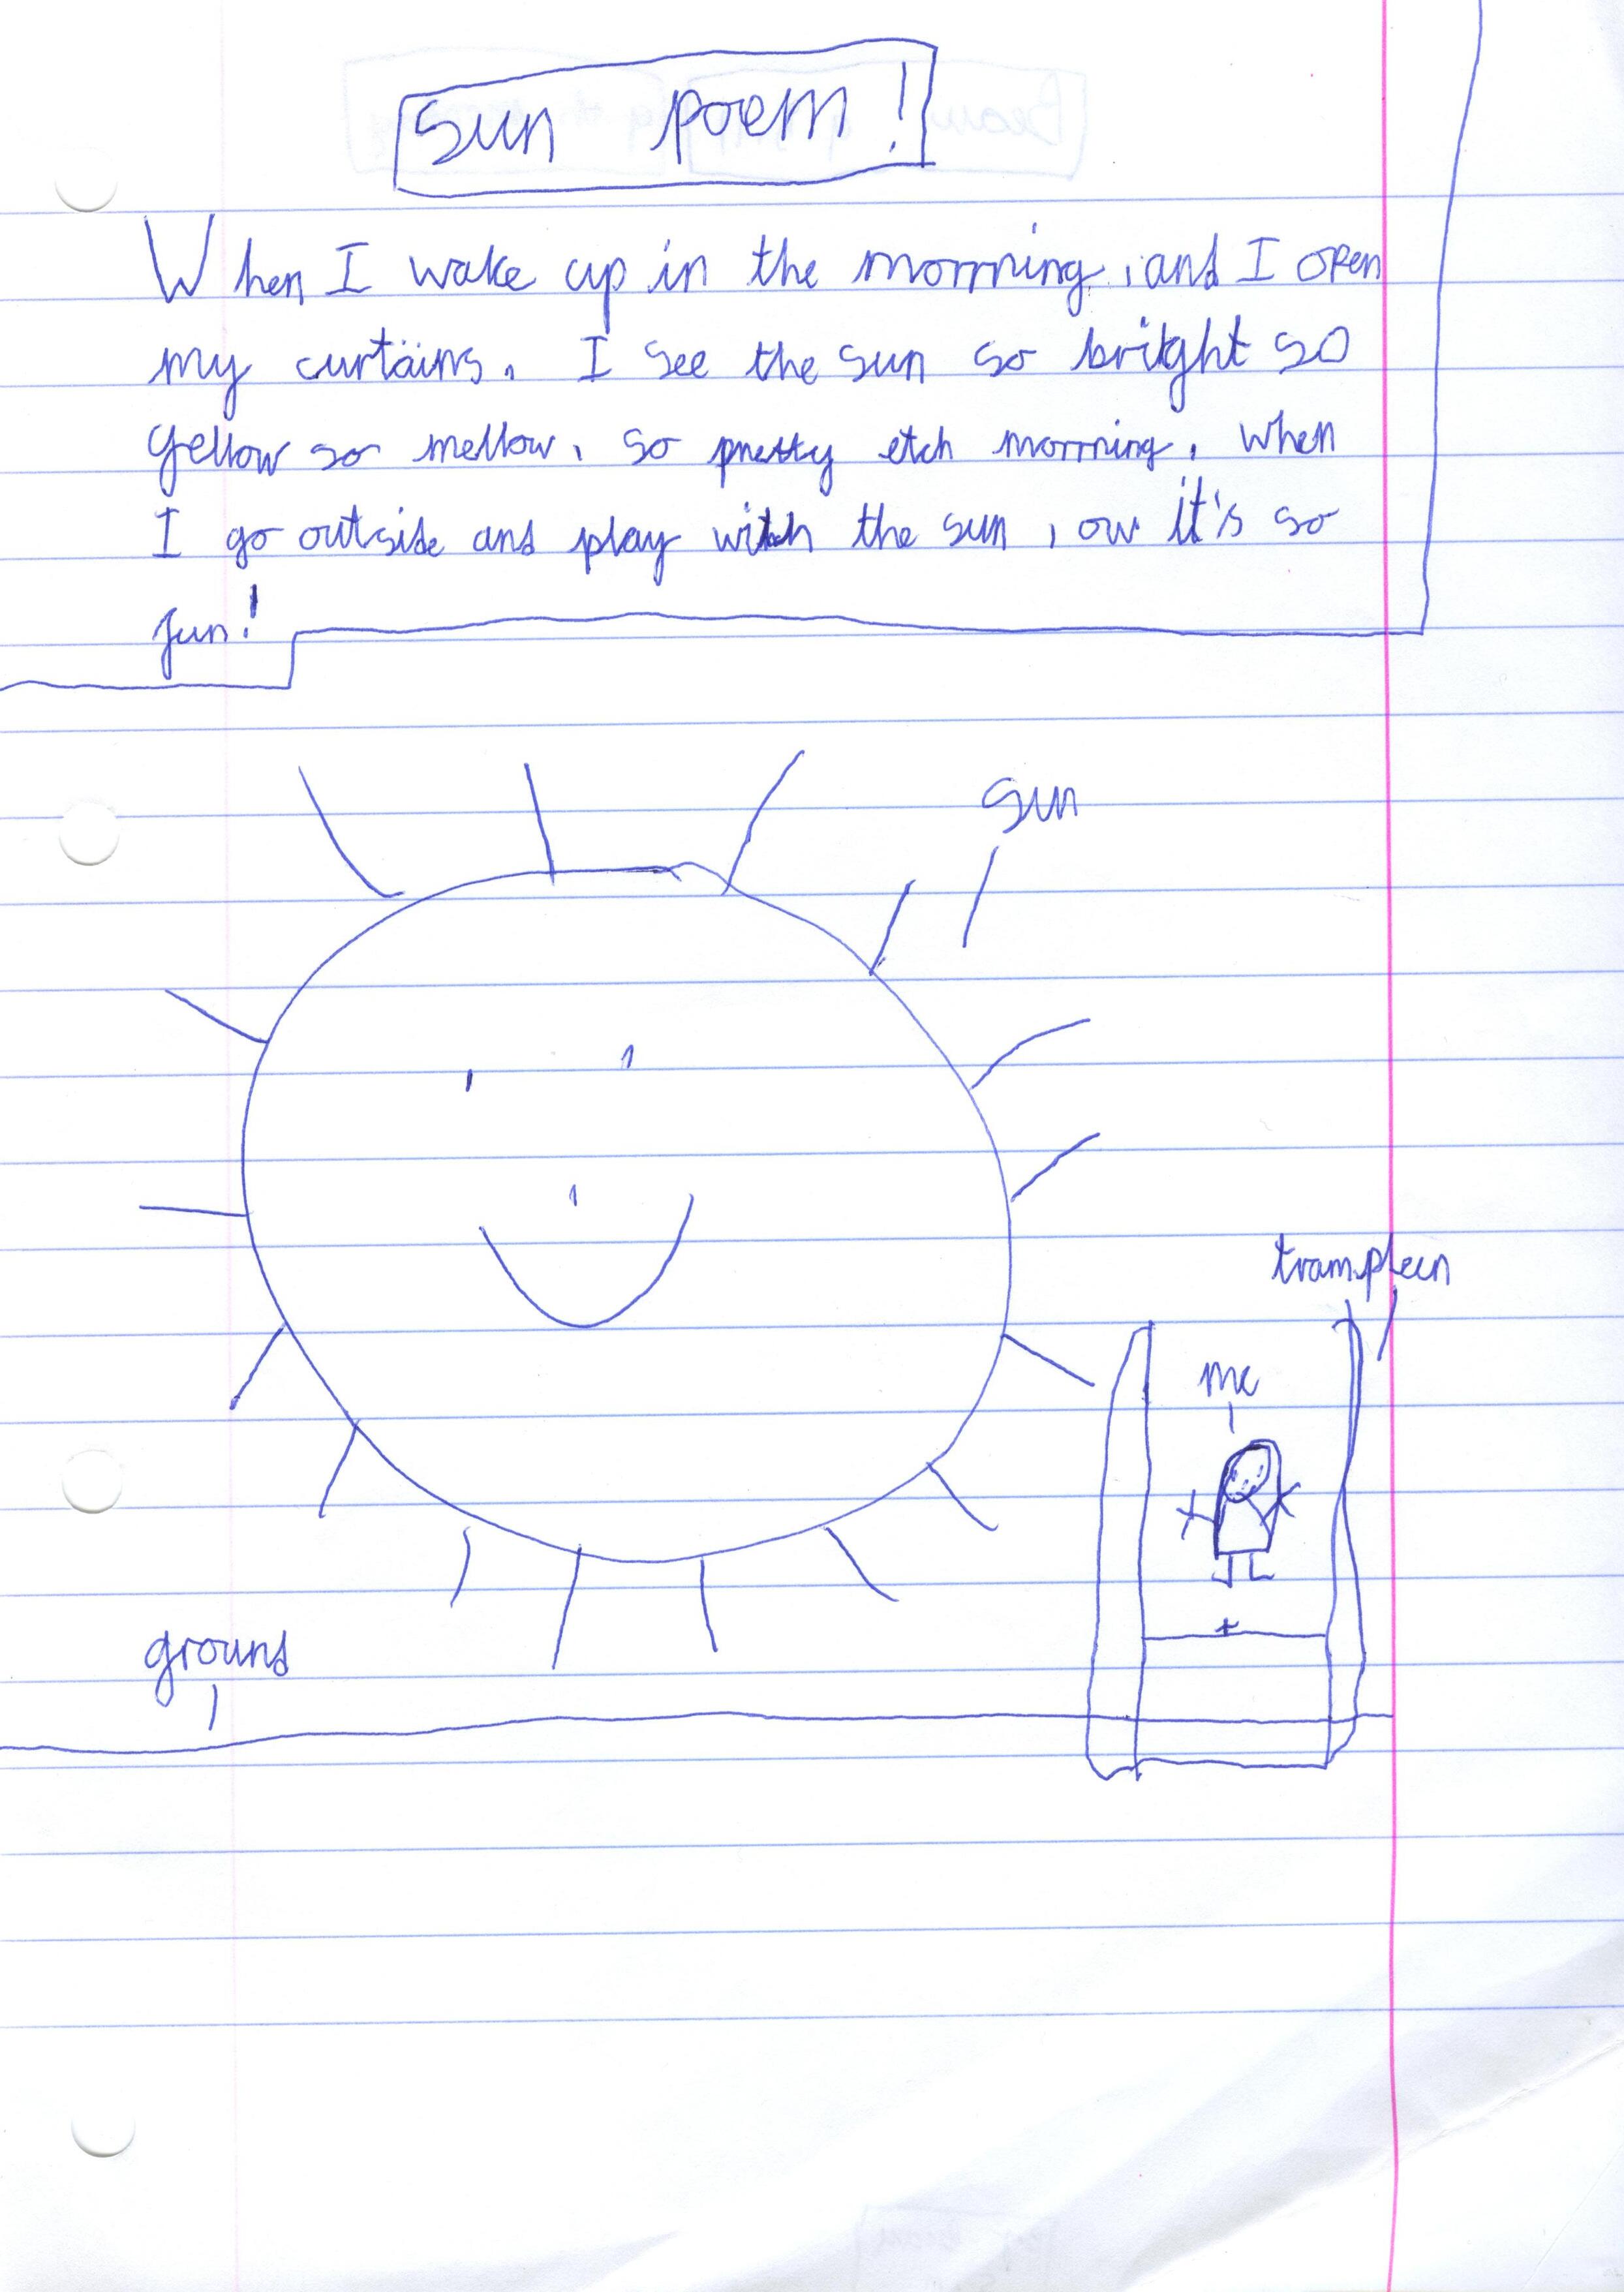 Sun poem!
When I wake up in the morrning, and I open
my curtains. I see the sun so bright so
yellow so mellow, so pretty etch morrning. When
I go outside and play with the sun, ow it's so
fun!
sun
trampleen
me
ground